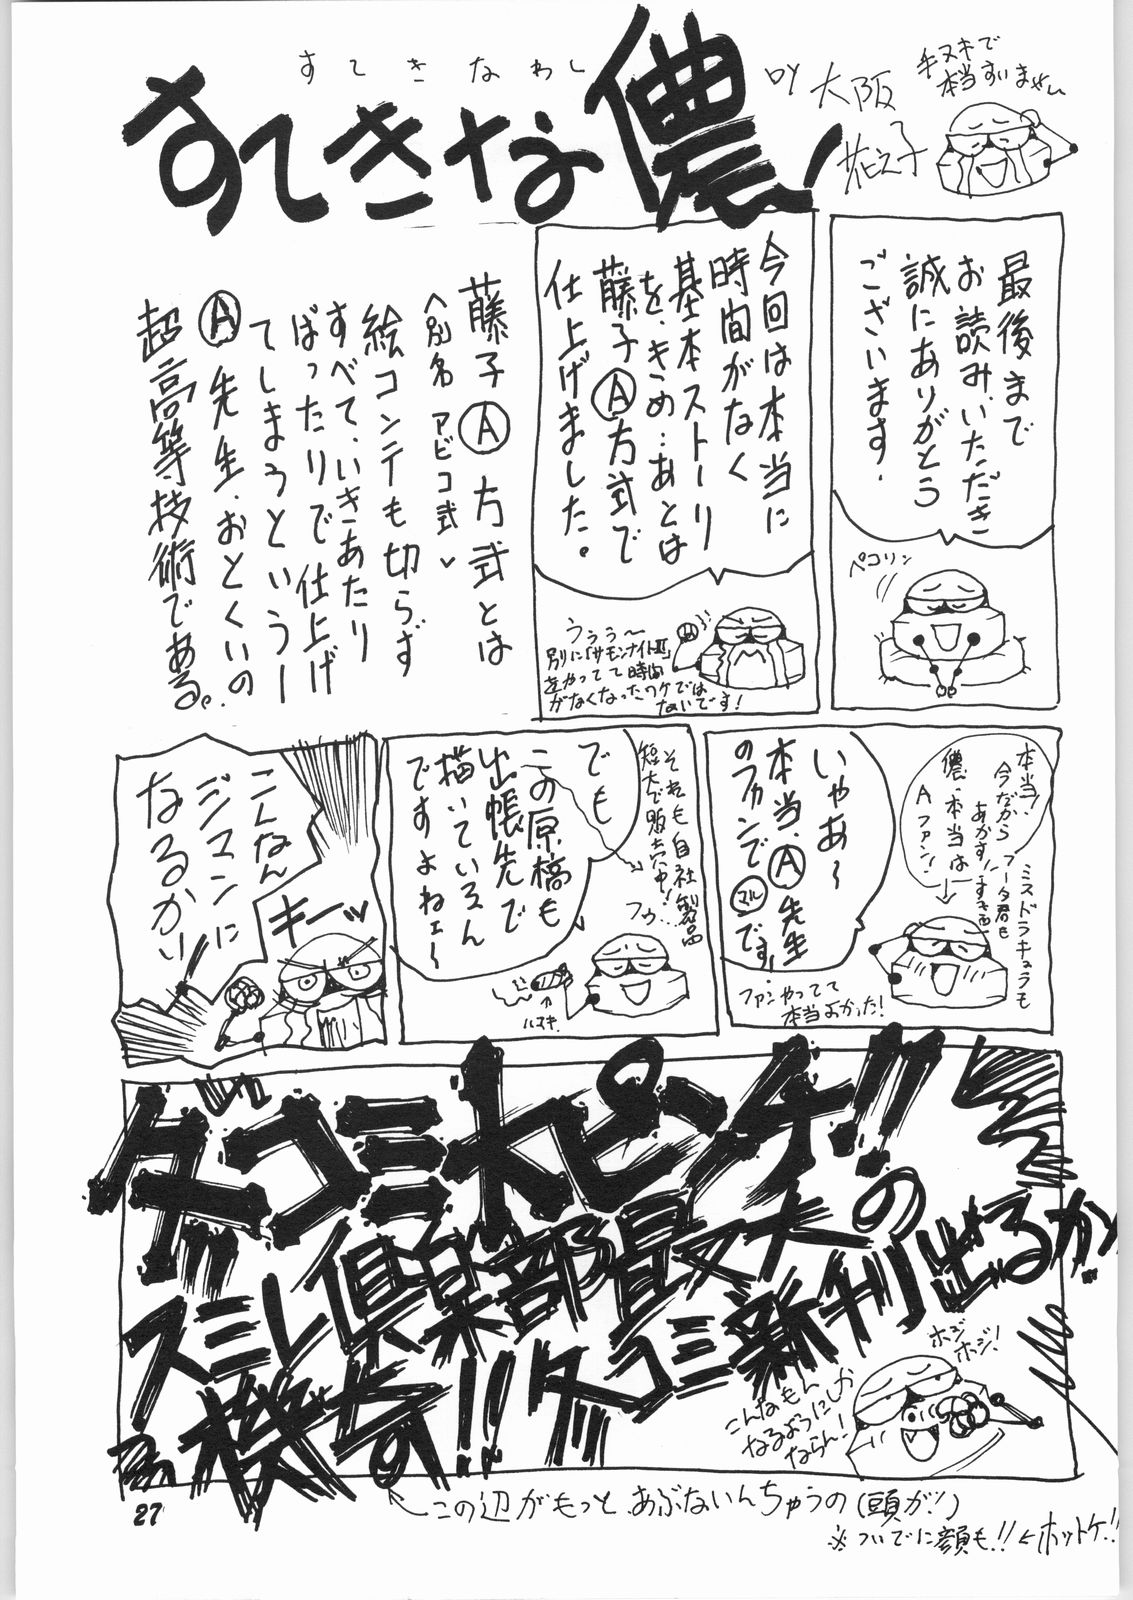 すてきなわし
すてきな儂!
BY 大阪
花之子
手ヌキで
本当すいませぃ
最後まで
お読みいただき
誠にありがとう
ございます.
ペコリン
今回は本当に
時間がなく
基本ストーリー
をきめ…あとは
藤子Ⓐ方式で
仕上げました。
うぅぅ〜
別に「サモンナイトⅡ」
をやってて時間
がなくなったワケでは
ないです!
藤子Ⓐ方式とは
〈別名アビコ式〉
絵コンテも切らず
すべていきあたり
ばったりで仕上げ
てしまうというー
Ⓐ先生おとくいの
超高等技術である。
本当!
今だから
あかす!
儂、本当は
Aファン!
ミスドラキュラも
フータ君も
すき
いやあ〜
本当Ⓐ先生
のファンで
マルです
ファンやってて
本当よかった!
でも
この原稿も
出帳先で
描いているん
ですよねェ〜
それも自社製品
短大で販売中!
フゥ…
ハヌキ
こんなん
ジマンに
なるかい
キーッ
ダコミ大ピンチ!!
スミレ倶楽部最大の
危機!! ダコミ新刊出るか!
ホジ
ホジ!
こんなもん
なるようにしか
ならん!
27
この辺がもっとあぶないんちゅうの(頭が!)
※ついでに顔も!!←ホットケ!!